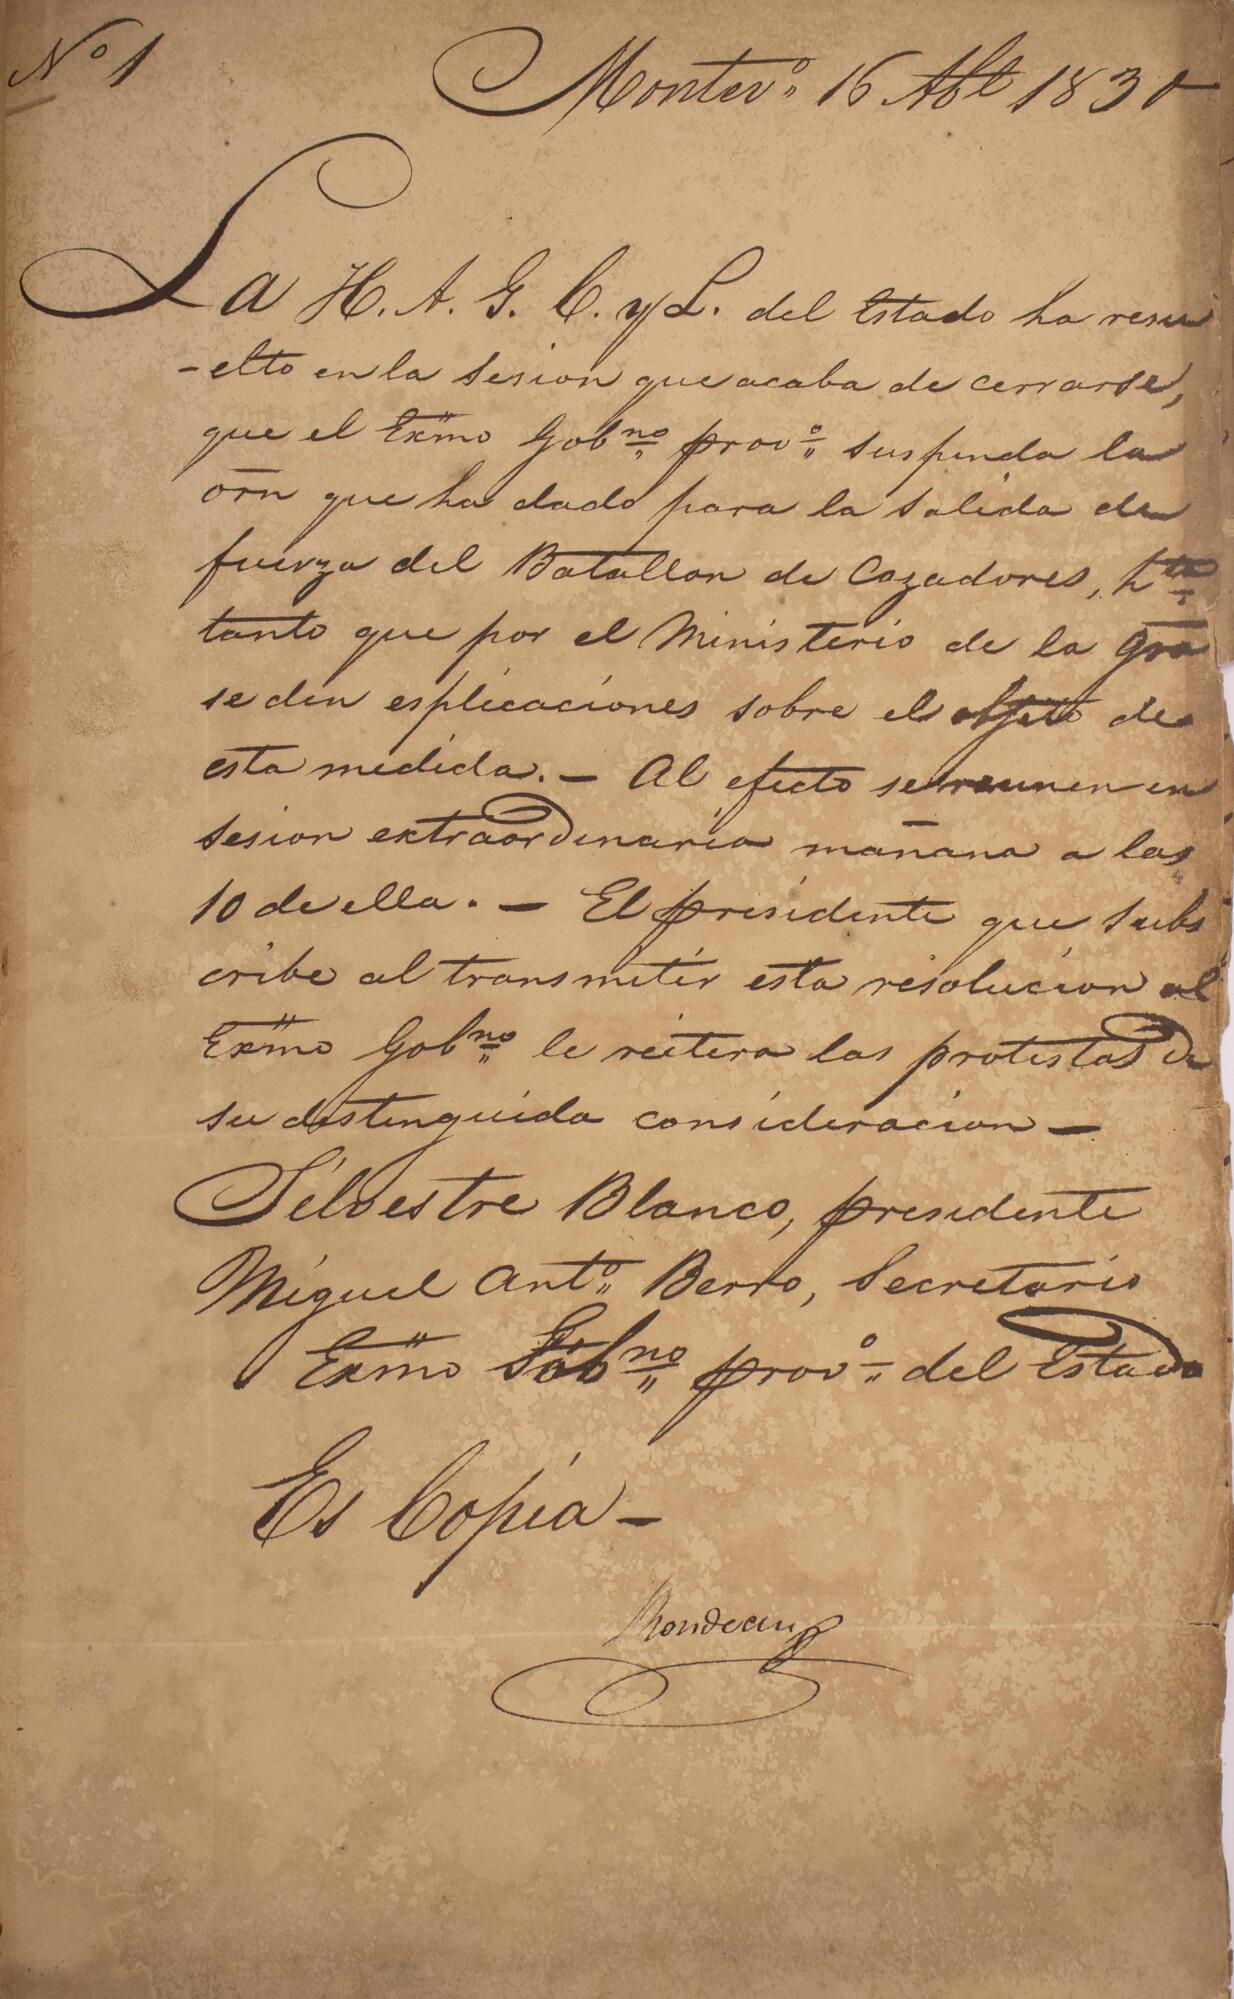 Nº 1
Montevº 16 Abl 1830
La H. A. G. C. y L. del Estado ha resu
-elto en la Sesion que acaba de cerrarse,
que el Exmo Gobno provº suspenda la
orn que ha dado para la salida de
fuerza del Batallon de Cazadores, hta
tanto que por el Ministerio de la Gra
se den esplicaciones sobre el objeto de
esta medida. — Al efecto se reunen en
sesion extraordinaria mañana a las
10 de ella. — El presidente que subs
cribe al transmitir esta resolucion al
Exmo Gobno le reitera las protestas de
su distinguida consideracion —
Silvestre Blanco, presidente
Miguel Antº Berro, Secretario
Exmo Gobno provº del Estado
Es Copia —
Rondeau